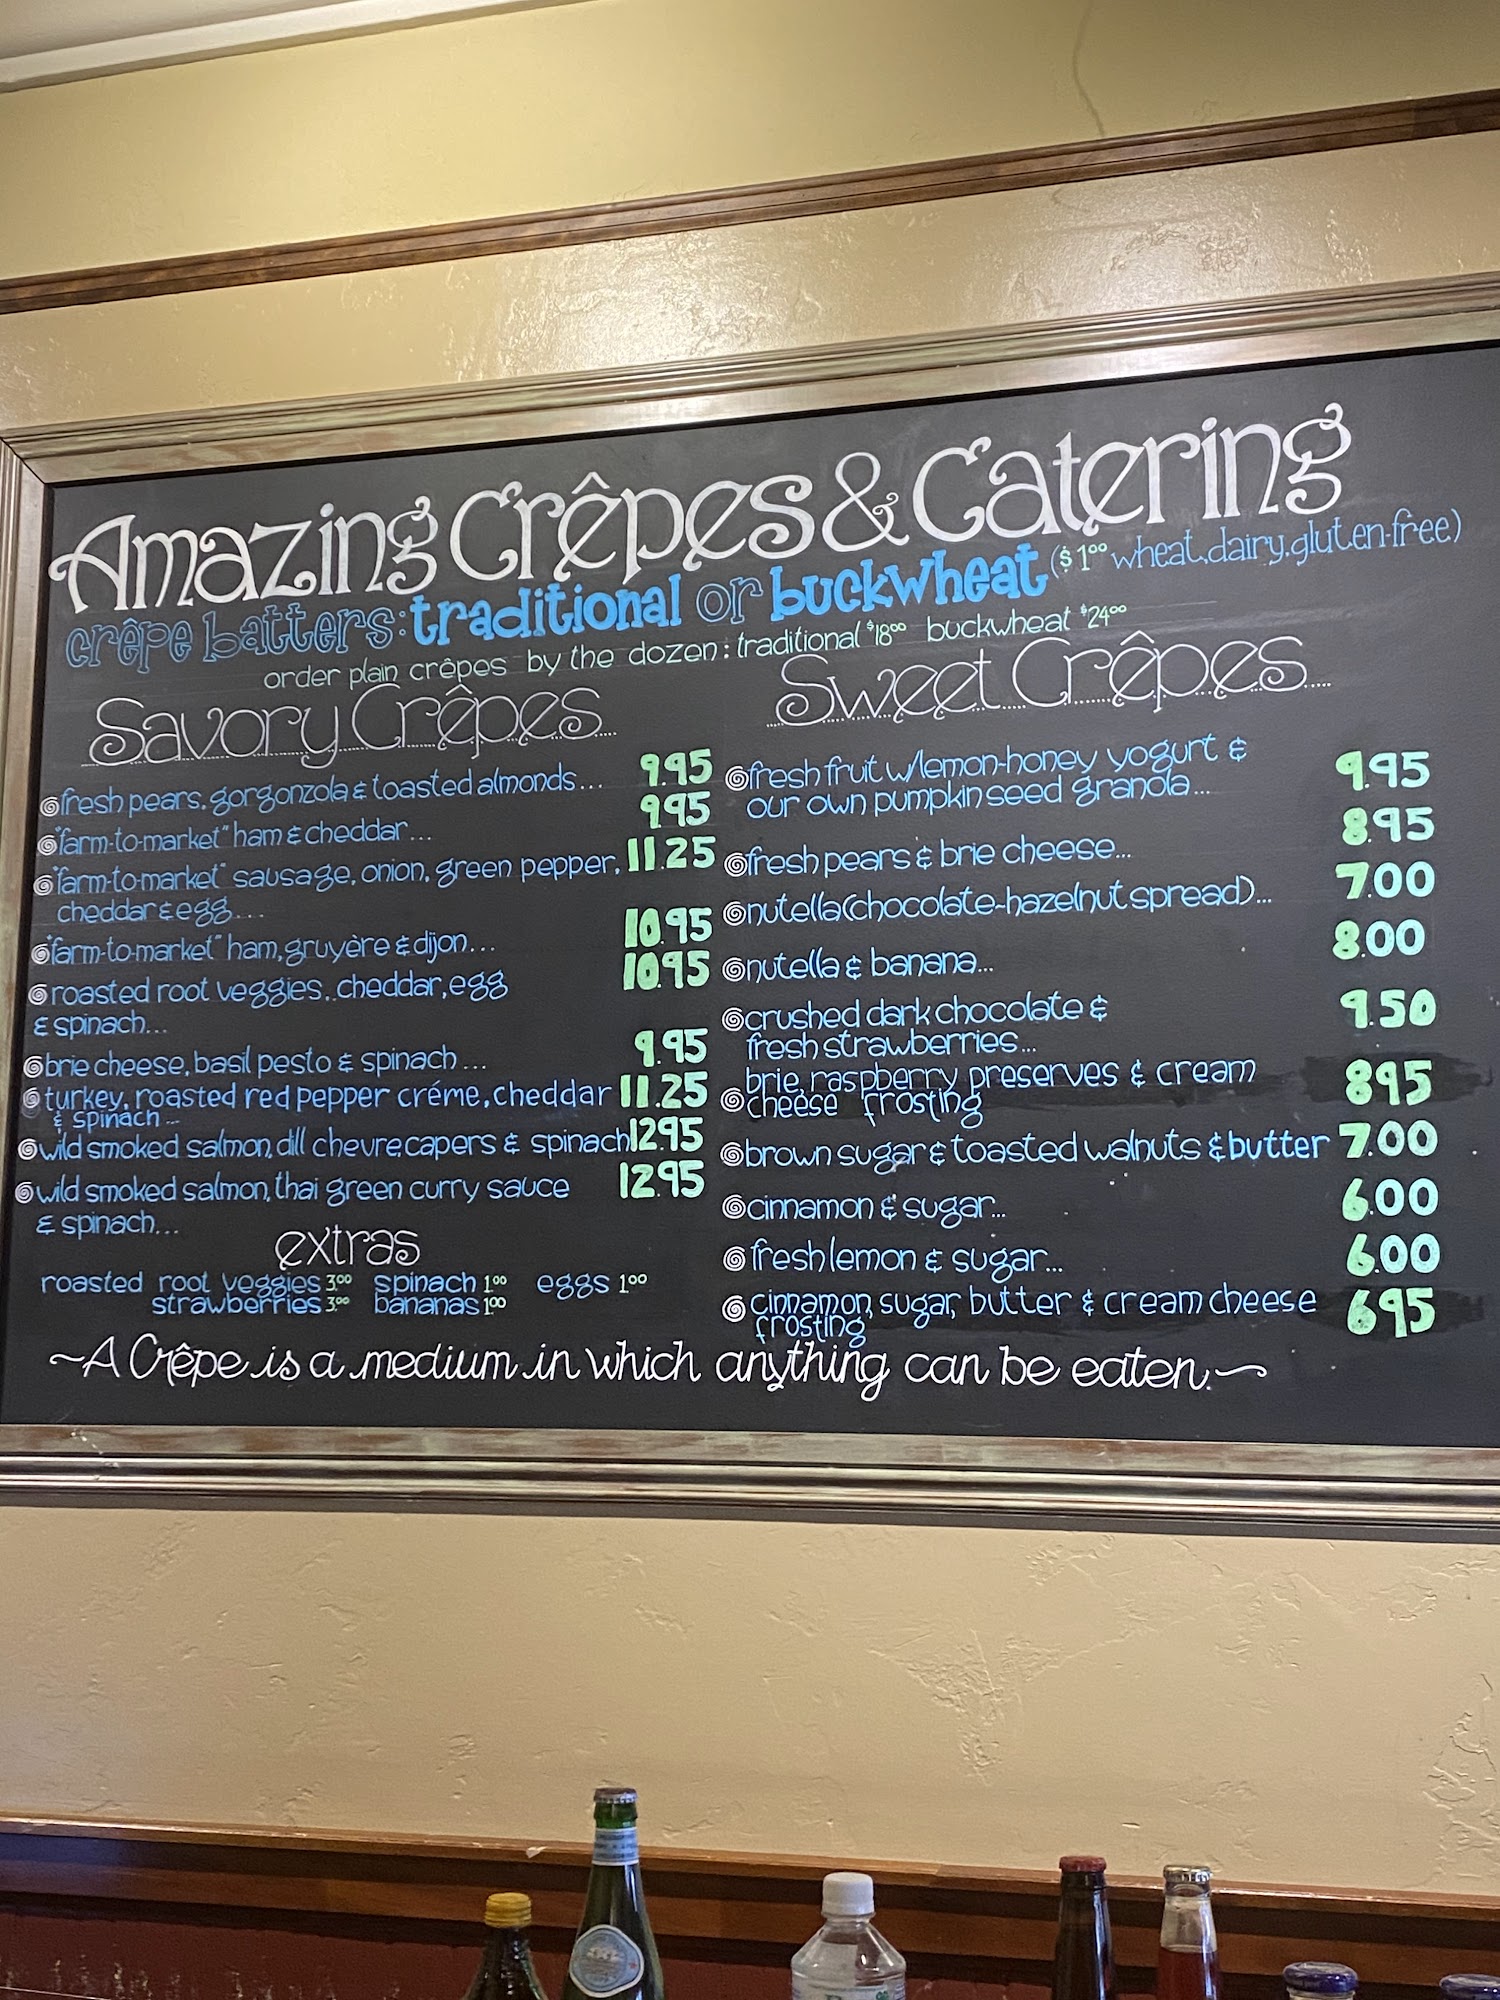 Amazing Crêpes & Catering
crêpe batters: traditional or buckwheat ($1.00 wheat, dairy, gluten-free)
order plain crêpes by the dozen: traditional $18.00 buckwheat $24.00
Savory Crêpes
fresh pears, gorgonzola & toasted almonds... 9.95
"farm-to-market" ham & cheddar... 9.95
"farm-to-market" sausage, onion, green pepper, 11.25
cheddar & egg...
"farm-to-market" ham, gruyère & dijon... 10.95
roasted root veggies, cheddar, egg 10.95
& spinach...
brie cheese, basil pesto & spinach... 9.95
turkey, roasted red pepper créme, cheddar 11.25
& spinach...
wild smoked salmon, dill chevre, capers & spinach 12.95
wild smoked salmon, thai green curry sauce 12.95
& spinach...
extras
roasted root veggies 3.00 spinach 1.00 eggs 1.00
strawberries 3.00 bananas 1.00
Sweet Crêpes
fresh fruit w/lemon-honey yogurt &
our own pumpkin seed granola... 9.95
fresh pears & brie cheese... 8.95
nutella (chocolate-hazelnut spread)... 7.00
nutella & banana... 8.00
crushed dark chocolate & 9.50
fresh strawberries...
brie, raspberry preserves & cream 8.95
cheese frosting
brown sugar & toasted walnuts & butter 7.00
cinnamon & sugar... 6.00
fresh lemon & sugar... 6.00
cinnamon, sugar, butter & cream cheese 6.95
frosting
~A Crêpe is a medium in which anything can be eaten.~